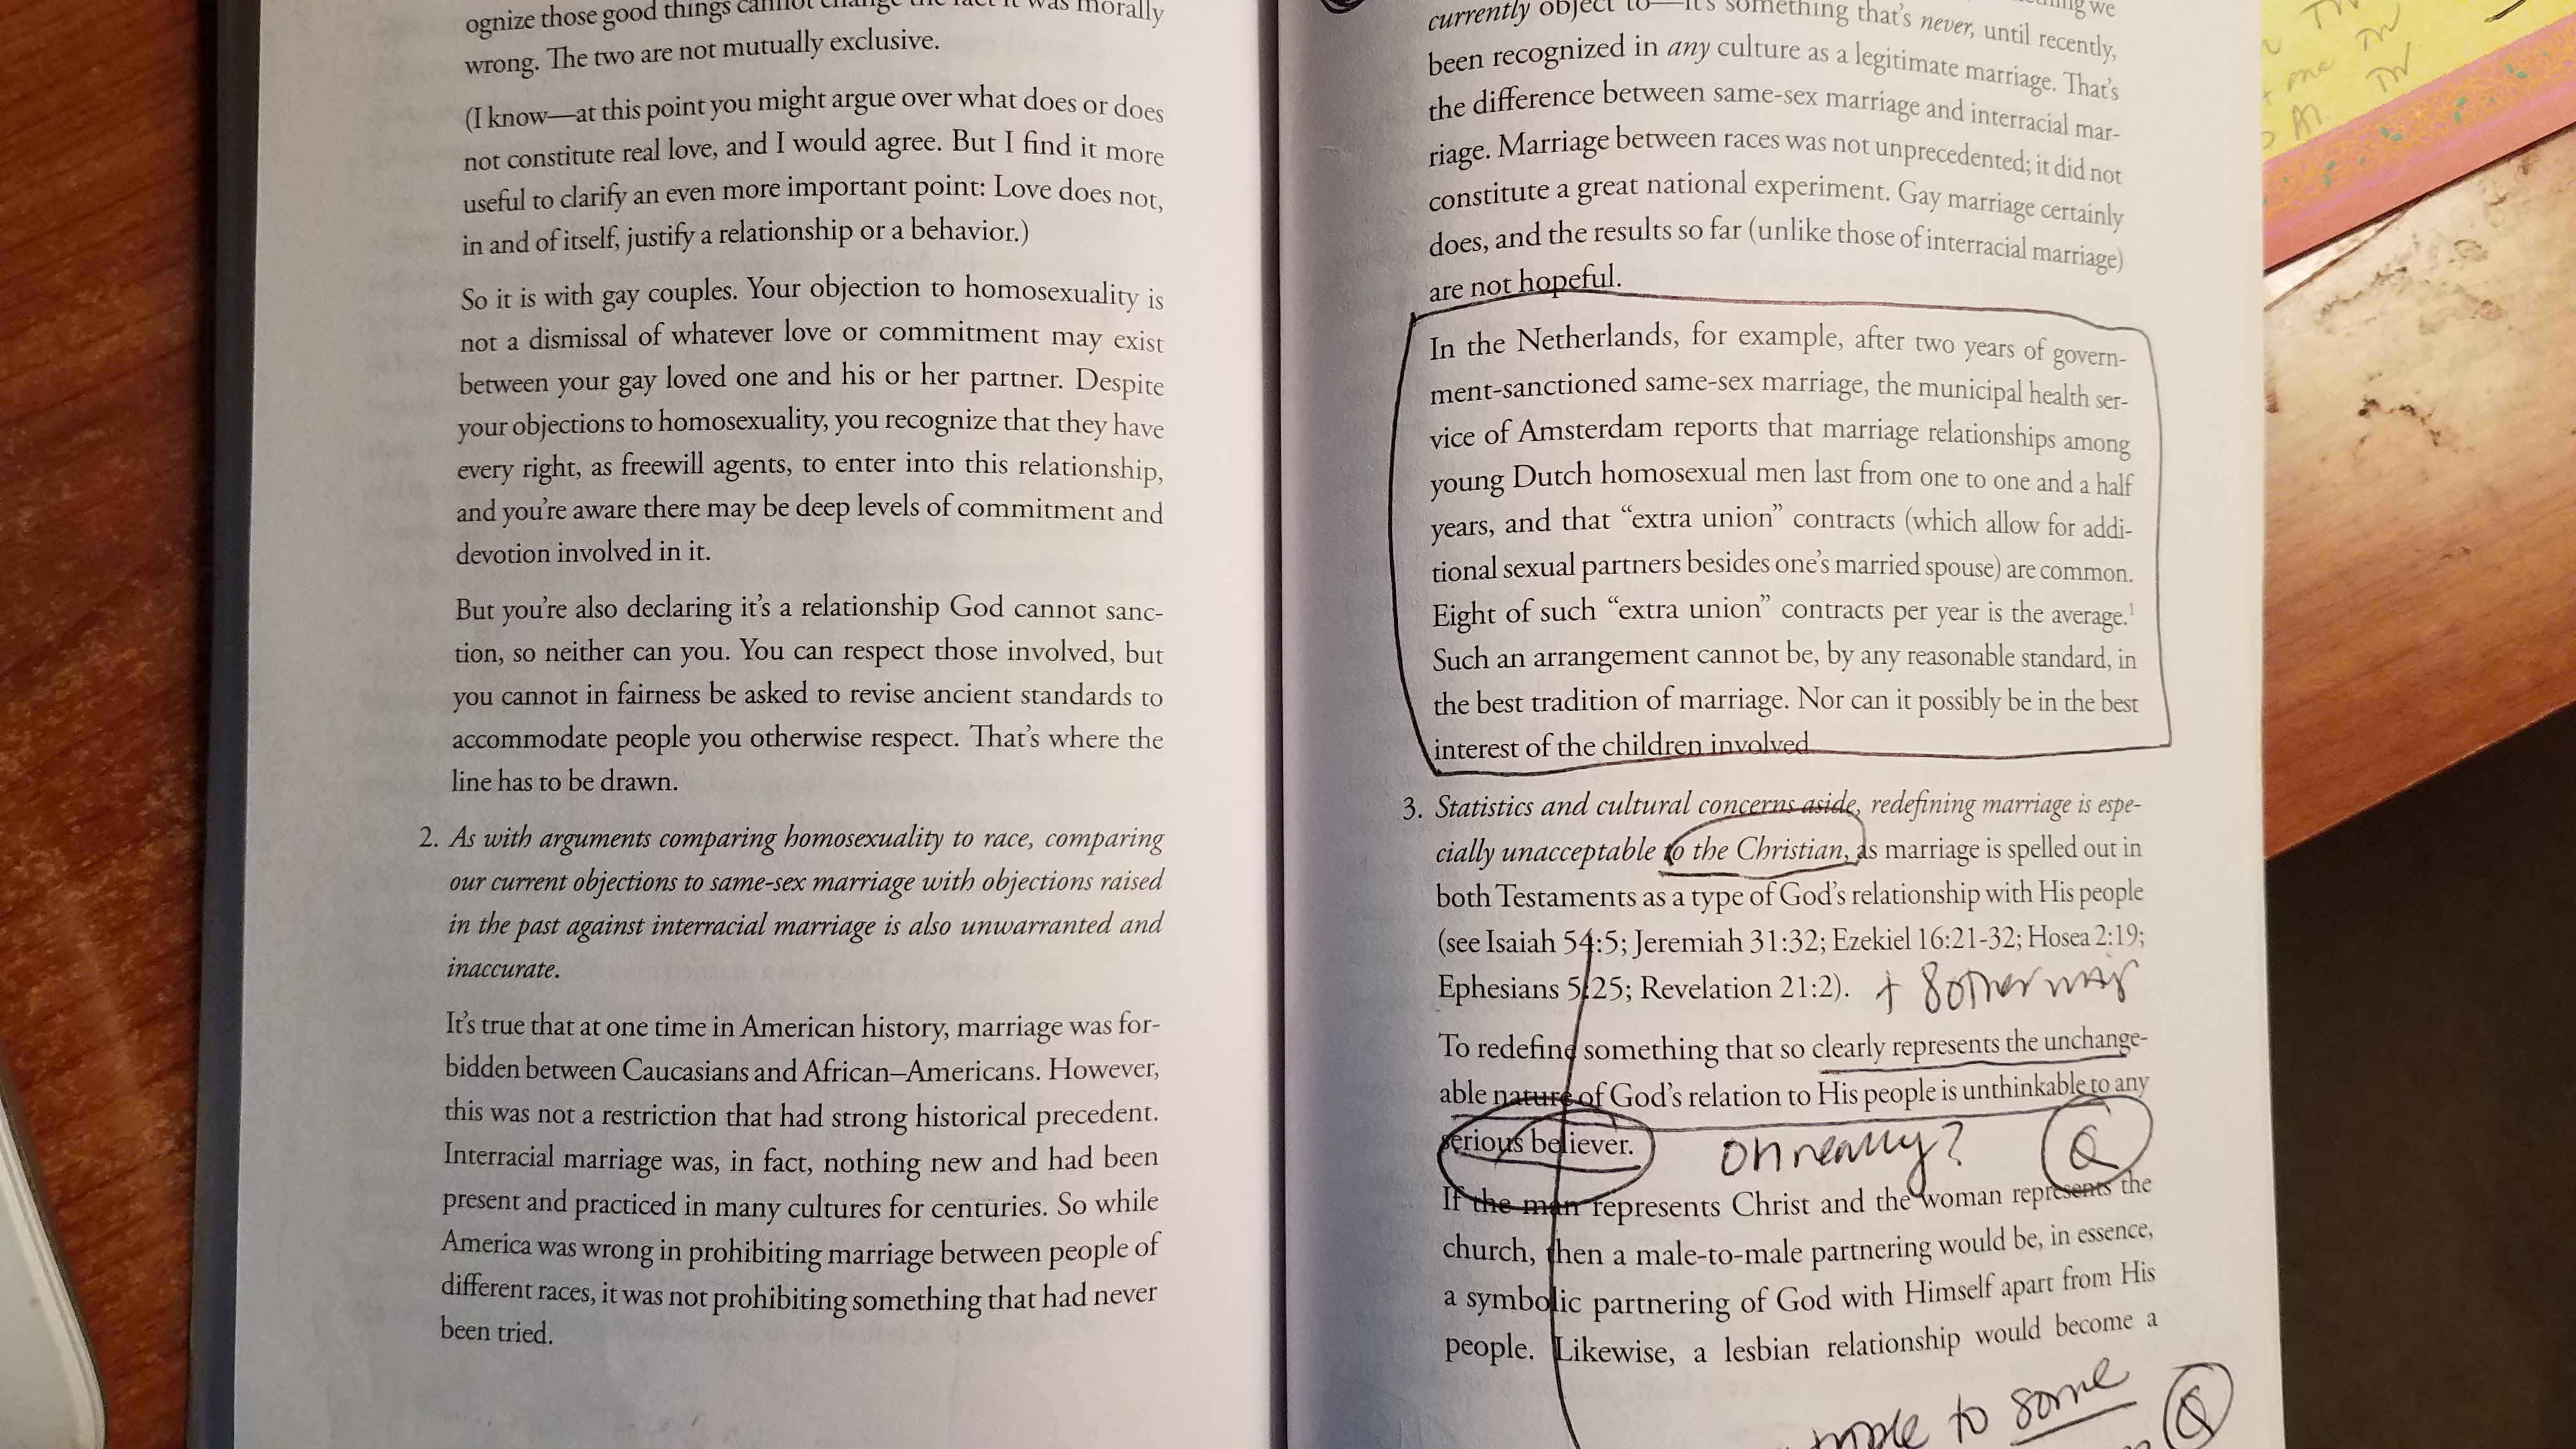 ognize those good things cannot change the fact it was morally
wrong. The two are not mutually exclusive.
(I know—at this point you might argue over what does or does
not constitute real love, and I would agree. But I find it more
useful to clarify an even more important point: Love does not,
in and of itself, justify a relationship or a behavior.)
So it is with gay couples. Your objection to homosexuality is
not a dismissal of whatever love or commitment may exist
between your gay loved one and his or her partner. Despite
your objections to homosexuality, you recognize that they have
every right, as freewill agents, to enter into this relationship,
and you're aware there may be deep levels of commitment and
devotion involved in it.
But you're also declaring it's a relationship God cannot sanc-
tion, so neither can you. You can respect those involved, but
you cannot in fairness be asked to revise ancient standards to
accommodate people you otherwise respect. That's where the
line has to be drawn.
2. As with arguments comparing homosexuality to race, comparing
our current objections to same-sex marriage with objections raised
in the past against interracial marriage is also unwarranted and
inaccurate.
It's true that at one time in American history, marriage was for-
bidden between Caucasians and African–Americans. However,
this was not a restriction that had strong historical precedent.
Interracial marriage was, in fact, nothing new and had been
present and practiced in many cultures for centuries. So while
America was wrong in prohibiting marriage between people of
different races, it was not prohibiting something that had never
been tried.
we
currently object to—it's something that's never, until recently,
been recognized in any culture as a legitimate marriage. That's
the difference between same-sex marriage and interracial mar-
riage. Marriage between races was not unprecedented; it did not
constitute a great national experiment. Gay marriage certainly
does, and the results so far (unlike those of interracial marriage)
are not hopeful.
In the Netherlands, for example, after two years of govern-
ment-sanctioned same-sex marriage, the municipal health ser-
vice of Amsterdam reports that marriage relationships among
young Dutch homosexual men last from one to one and a half
years, and that “extra union” contracts (which allow for addi-
tional sexual partners besides one's married spouse) are common.
Eight of such “extra union” contracts per year is the average.1
Such an arrangement cannot be, by any reasonable standard, in
the best tradition of marriage. Nor can it possibly be in the best
interest of the children involved.
3. Statistics and cultural concerns aside, redefining marriage is espe-
cially unacceptable to the Christian, as marriage is spelled out in
both Testaments as a type of God's relationship with His people
(see Isaiah 54:5; Jeremiah 31:32; Ezekiel 16:21-32; Hosea 2:19;
Ephesians 5:25; Revelation 21:2). + 8 other
To redefine something that so clearly represents the unchange-
able nature of God's relation to His people is unthinkable to any
serious believer. Oh really? Q
If the man represents Christ and the woman represents the
church, then a male-to-male partnering would be, in essence,
a symbolic partnering of God with Himself apart from His
people. Likewise, a lesbian relationship would become a
to some Q